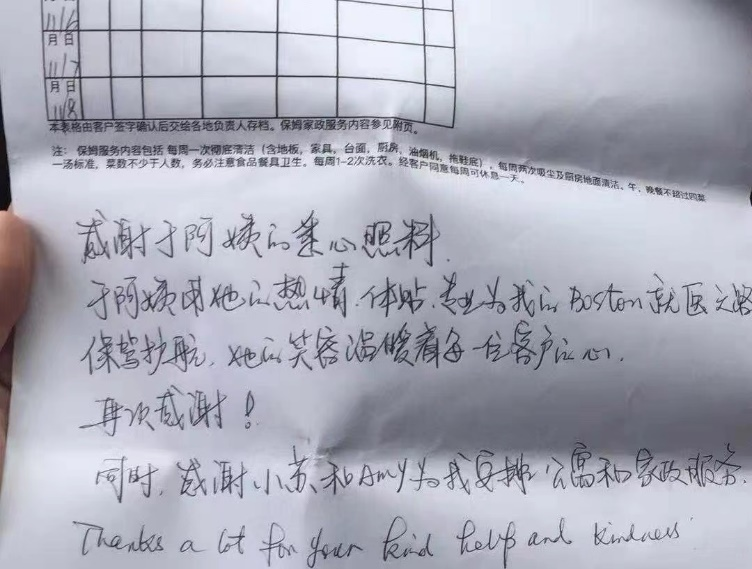 11/6
月 日
11/7
月 日
11/8
本表格由客户签字确认后交给各地负责人存档。保姆家政服务内容参见附页。
注： 保姆服务内容包括 每周一次彻底清洁（含地板，家具，台面，厨房，油烟机，拖鞋底），每周两次吸尘及厨房地面清洁。午，晚餐不超过四菜
一汤标准，菜数不少于人数，务必注意食品餐具卫生。每周1-2次洗衣。经客户同意每周可休息一天。
感谢于阿姨的悉心照料.
于阿姨用她的热情.体贴.专业为我的Boston就医之路
保驾护航，她的笑容温暖着每一位客户的心.
再次感谢！
同时，感谢小苏和Amy为我安排公寓和家政服务.
Thanks a lot for your kind help and kindness